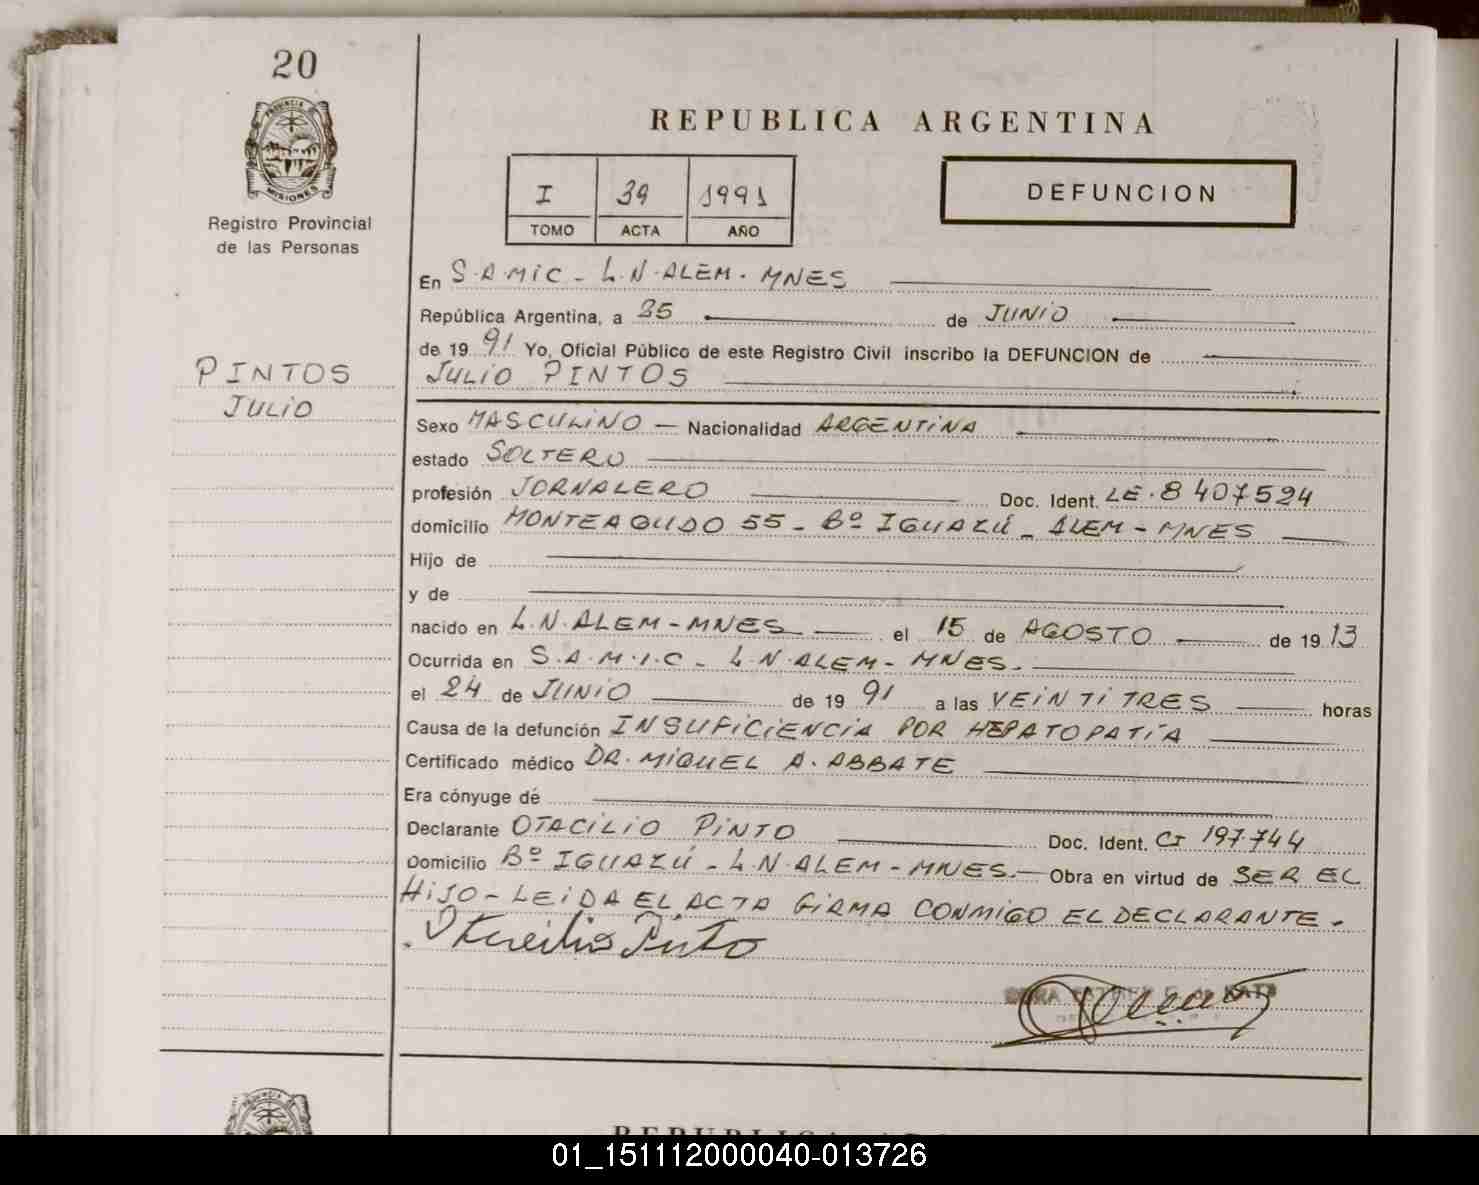 20
PROVINCIA D
MISIONES
Registro Provincial
de las Personas
REPUBLICA ARGENTINA
I 39 1991
TOMO ACTA AÑO
DEFUNCION
En S.A.MIC - L.N.ALEM. MNES
República Argentina, a 25 de JUNIO
de 19 91 Yo, Oficial Público de este Registro Civil inscribo la DEFUNCION de
JULIO PINTOS
PINTOS
JULIO
Sexo MASCULINO — Nacionalidad ARGENTINA
estado SOLTERO
profesión JORNALERO Doc. Ident. LE.8 407524
domicilio MONTEAGUDO 55 - Bº IGUAZÚ - ALEM - MNES
Hijo de
y de
nacido en L.N.ALEM-MNES el 15 de AGOSTO de 19 13
Ocurrida en S.A.M.I.C - L.N.ALEM- MNES.
el 24 de JUNIO de 19 91 a las VEINTITRES horas
Causa de la defunción INSUFICIENCIA POR HEPATOPATIA
Certificado médico DR. MIGUEL A. ABBATE
Era cónyuge de
Declarante OTACILIO PINTO Doc. Ident. CI 197.744
Domicilio Bº IGUAZÚ - L.N.ALEM - MNES.— Obra en virtud de SER EL
HIJO - LEIDA EL ACTA FIRMA CONMIGO EL DECLARANTE.
Otacilio Pinto
01_151112000040-013726